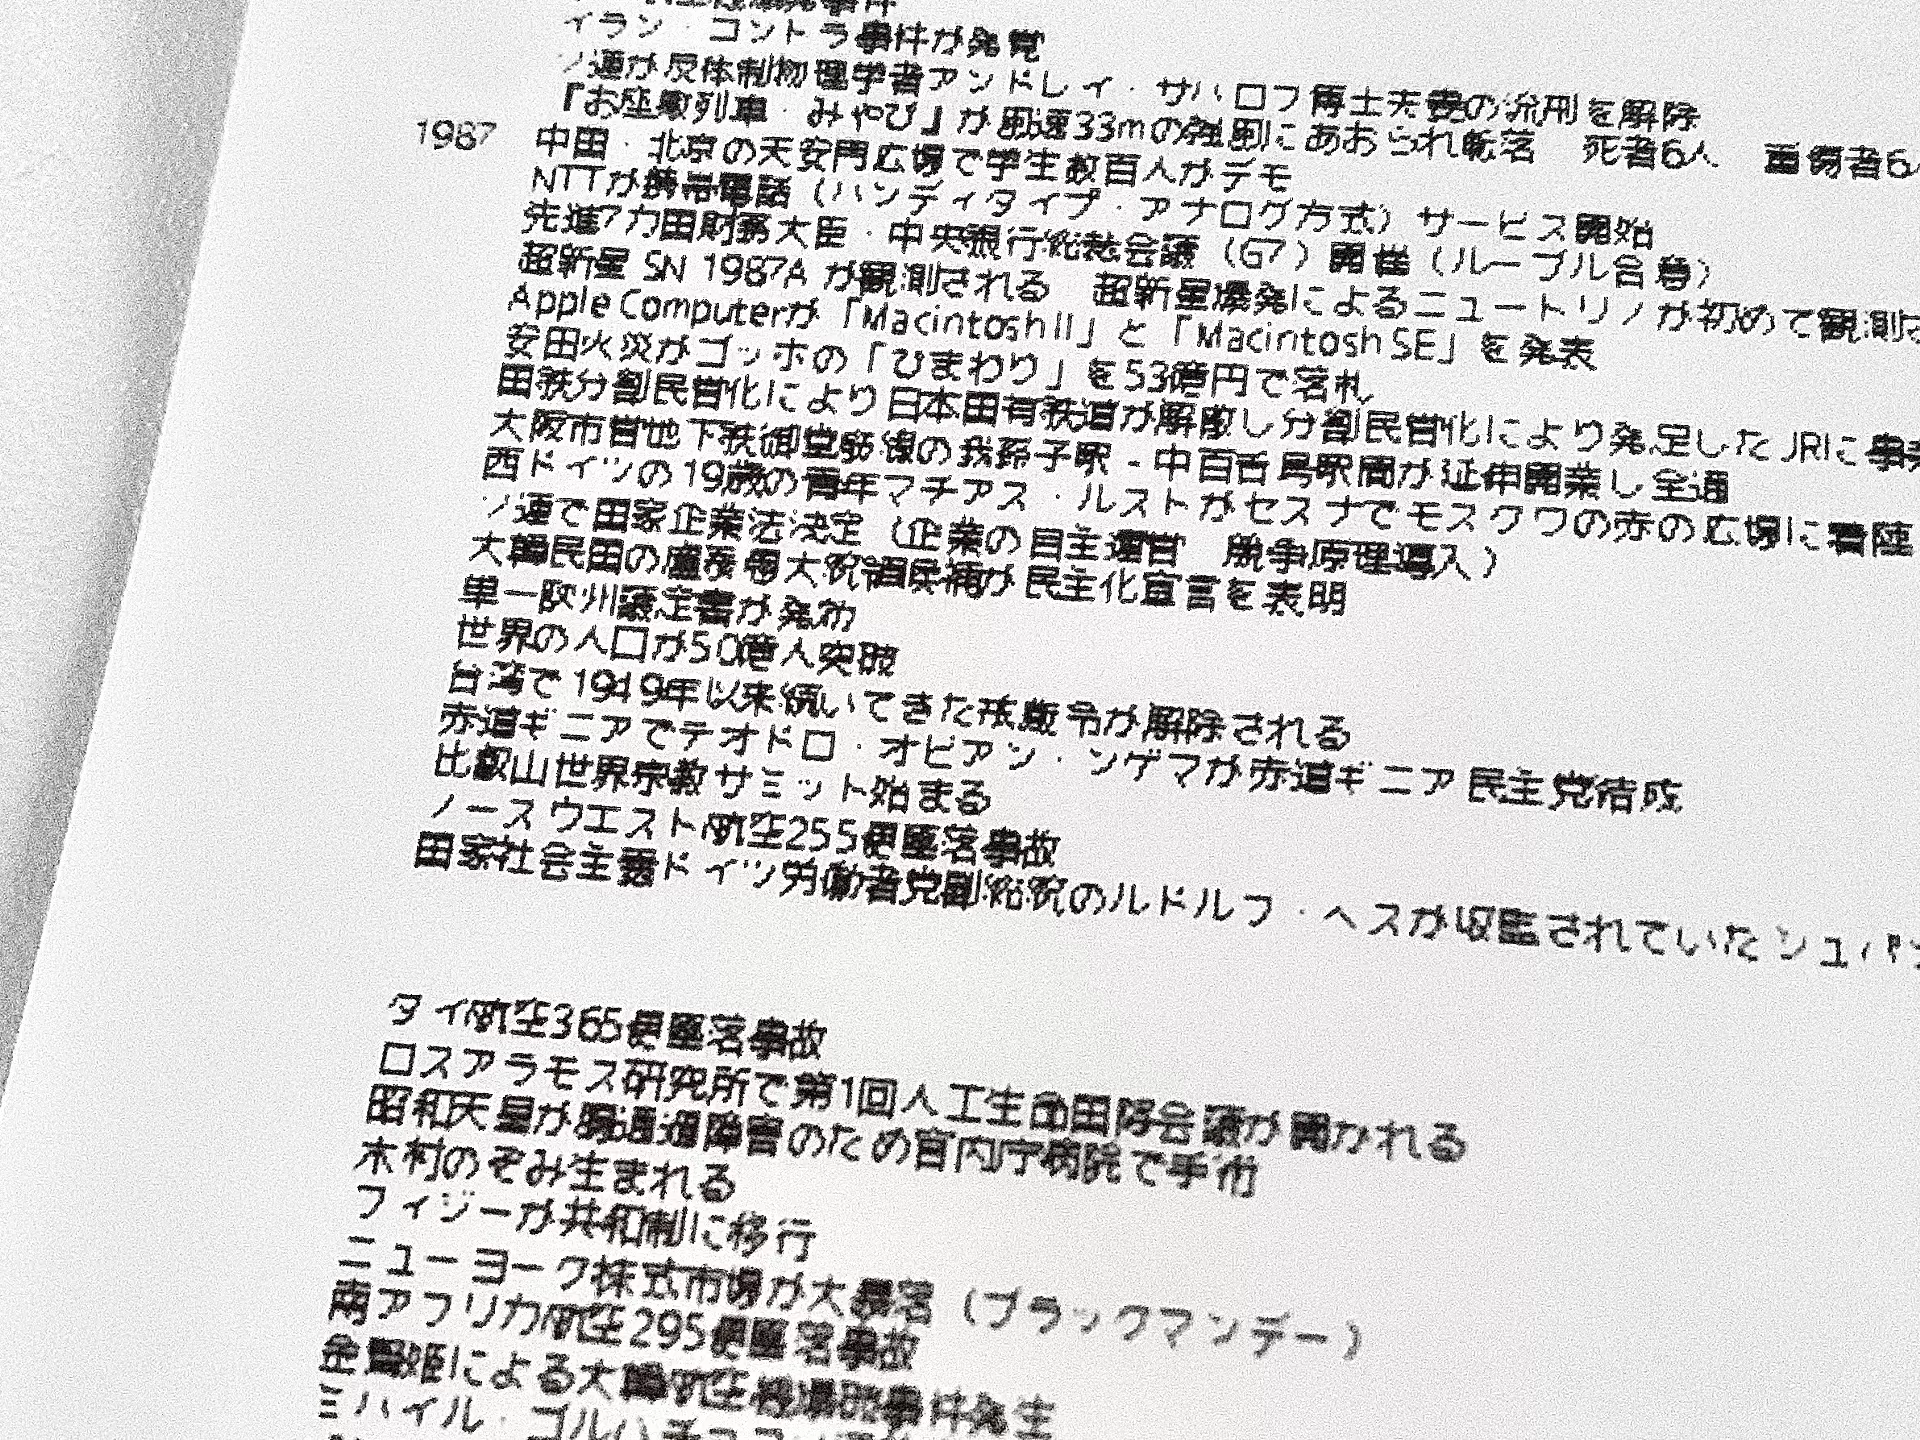 イラン・コントラ事件が発覚
ソ連が反体制物理学者アンドレイ・サハロフ博士夫妻の流刑を解除
『お座敷列車・みやび』が風速33mの強風にあおられ転落 死者6人 重傷者6人
1987 中国・北京の天安門広場で学生数百人がデモ
NTTが携帯電話（ハンディタイプ・アナログ方式）サービス開始
先進7カ国財務大臣・中央銀行総裁会議（G7）開催（ルーブル合意）
超新星 SN 1987A が観測される 超新星爆発によるニュートリノが初めて観測さ
Apple Computerが「Macintosh II」と「Macintosh SE」を発表
安田火災がゴッホの「ひまわり」を53億円で落札
国鉄分割民営化により日本国有鉄道が解散し分割民営化により発足したJRに事業
大阪市営地下鉄御堂筋線の我孫子駅 - 中百舌鳥駅間が延伸開業し全通
西ドイツの19歳の青年マチアス・ルストがセスナでモスクワの赤の広場に着陸
ソ連で国家企業法決定（企業の自主運営 競争原理導入）
大韓民国の盧泰愚大統領候補が民主化宣言を表明
単一欧州議定書が発効
世界の人口が50億人突破
台湾で1949年以来続いてきた戒厳令が解除される
赤道ギニアでテオドロ・オビアン・ンゲマが赤道ギニア民主党結成
比叡山世界宗教サミット始まる
ノースウエスト航空255便墜落事故
国家社会主義ドイツ労働者党副総統のルドルフ・ヘスが収監されていたシュパン
タイ航空365便墜落事故
ロスアラモス研究所で第1回人工生命国際会議が開かれる
昭和天皇が腸通過障害のため宮内庁病院で手術
木村のぞみ生まれる
フィジーが共和制に移行
ニューヨーク株式市場が大暴落（ブラックマンデー）
南アフリカ航空295便墜落事故
金賢姫による大韓航空機爆破事件発生
ミハイル・ゴルバチョフ